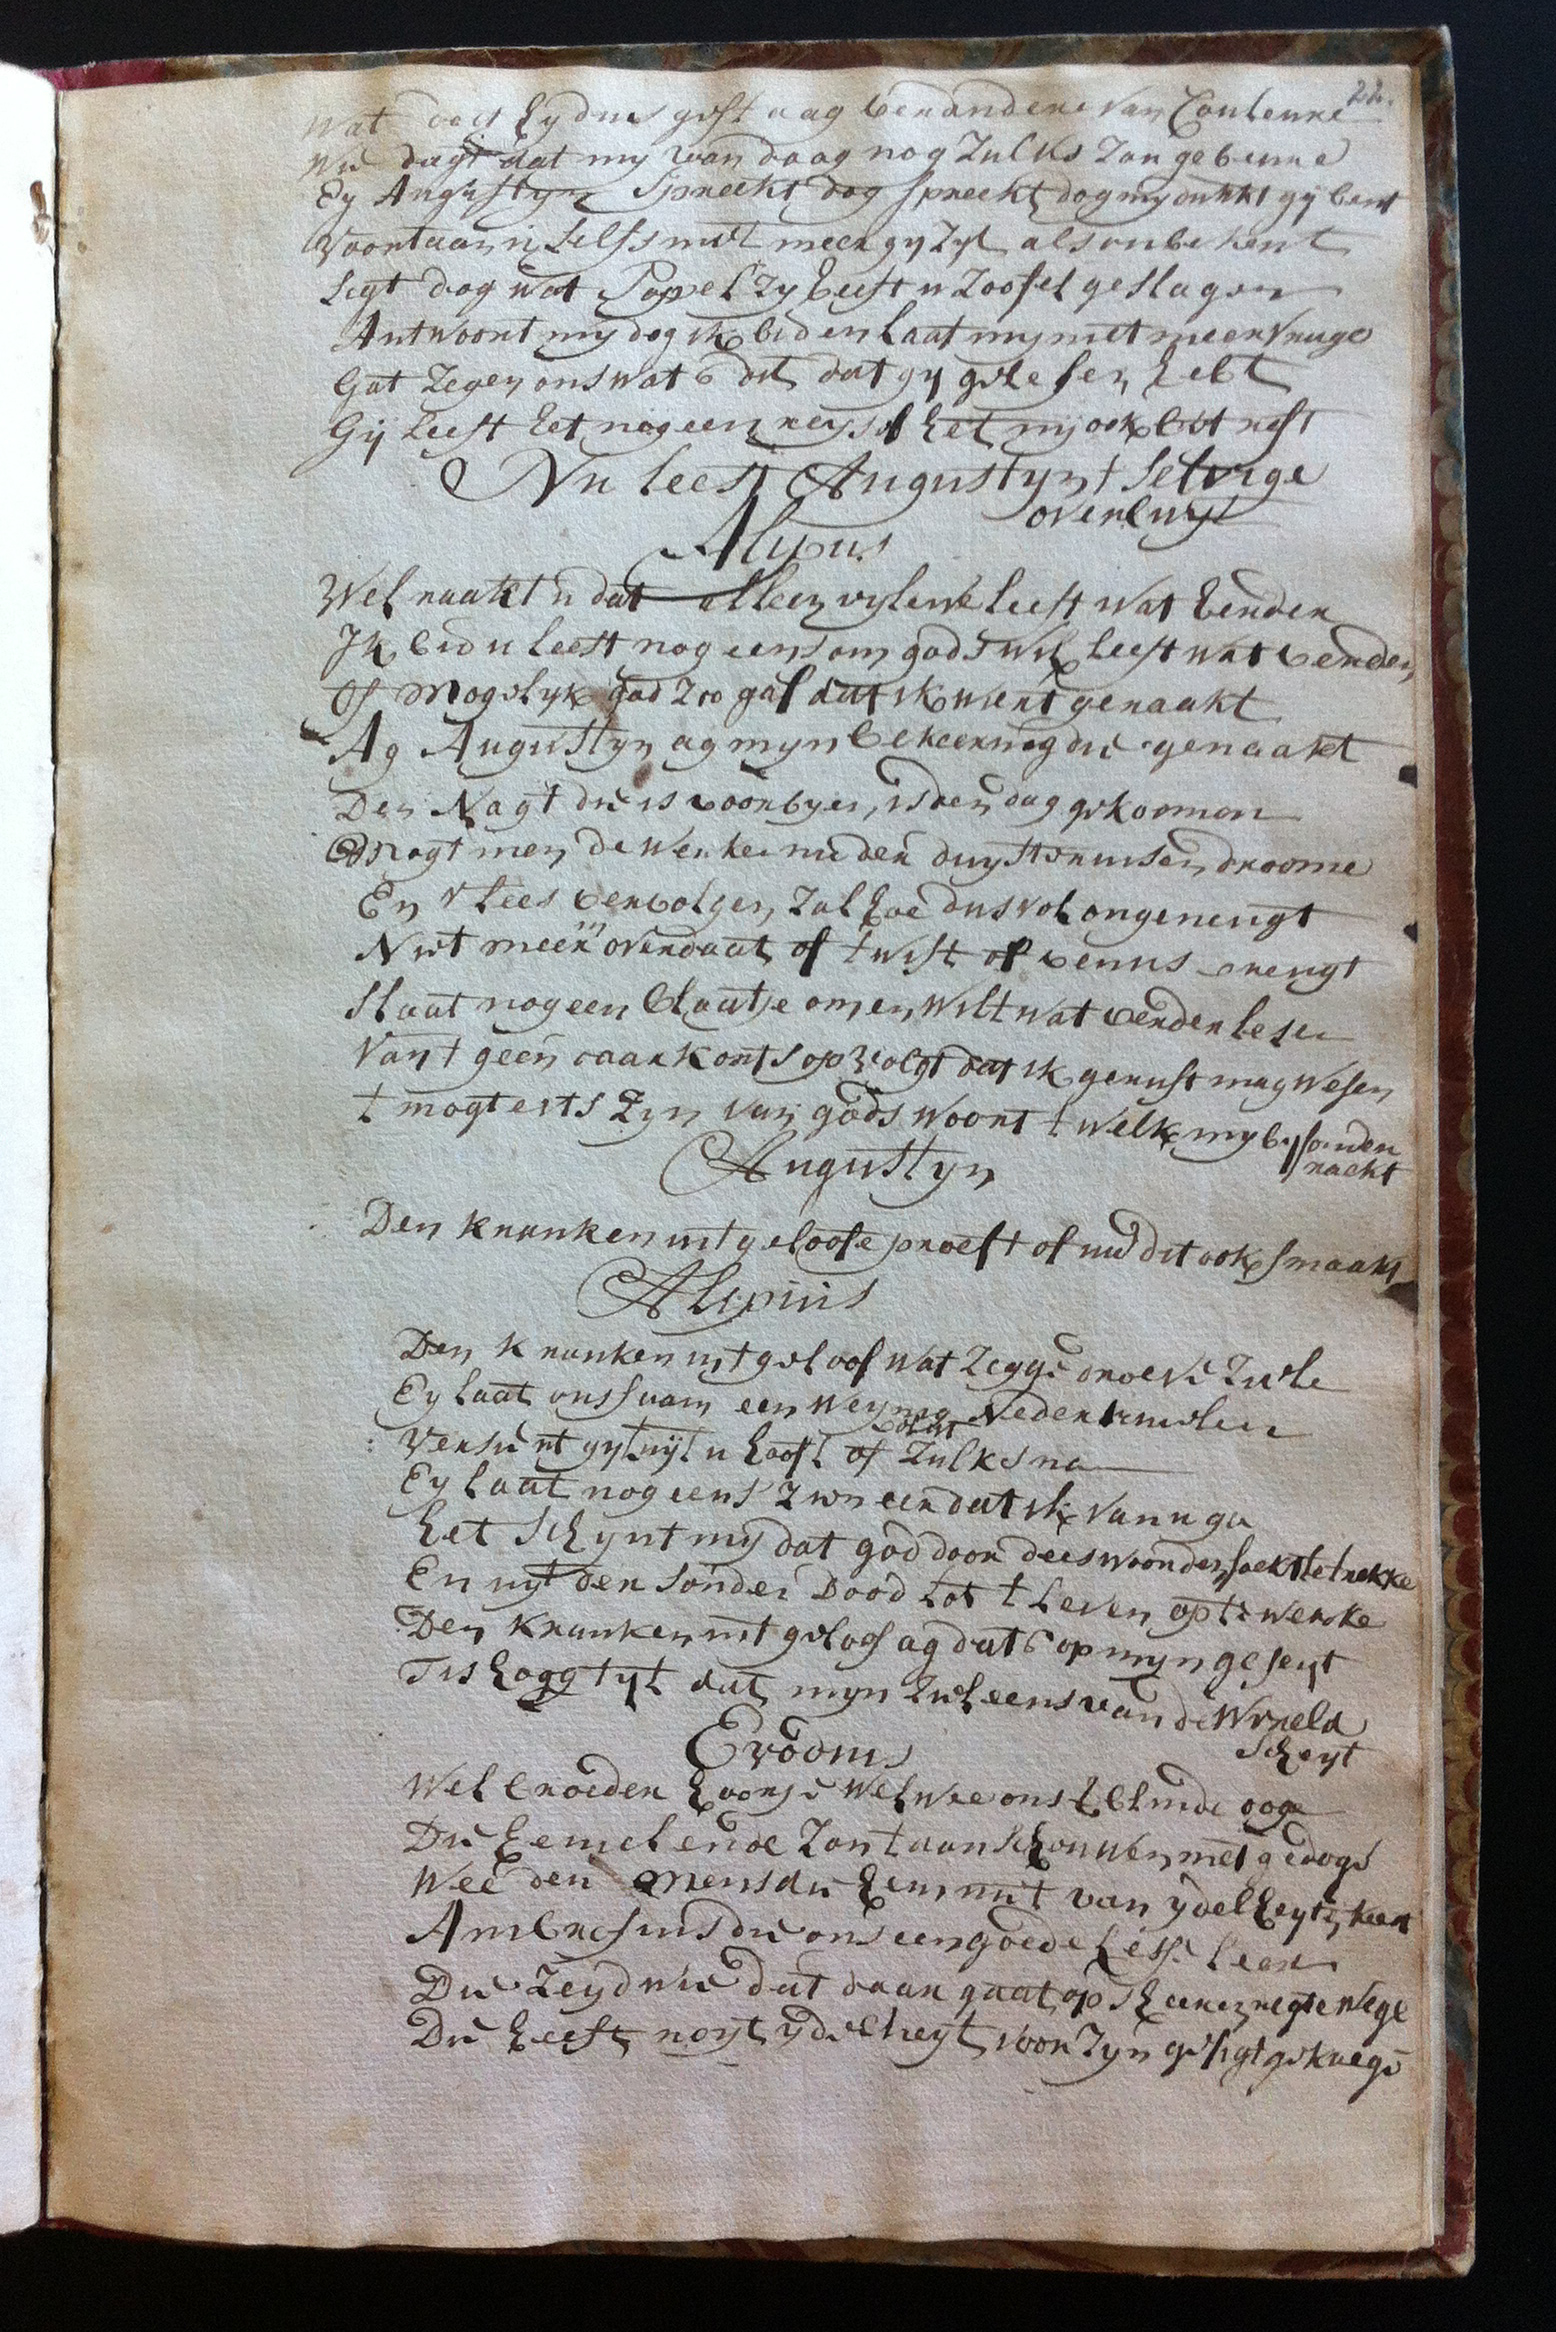 22.
Wat doet hy dus gist aag veranderen van Couleure
Wie dagt dat my van daag nog Zulks Zou gebeure
Ey Augustyn Spreekt dog spreekt dog my dunkt gy bent
Voortaan u selfs niet meer gy Zyt als onbekent
Segt dog wat Pappel Zy heeft u Zoo fel geslagen
Antwoort my dog ik bid en laat my niet meer vrage
Gat Zegen ons wat 's dit dat gy gelesen hebt
Gij leest het nog een reys of het mij ook
Nu leest Augustyn t selvige
overluyt
Alipus
Wel raakt u dat alleen vylewe leest wat verder
Ik bid u leest nog eens om gods wil leest wat verder
Of Mogelyk god Zoo gaf dat ik wiert geraakt
Ag Augustyn ag myn bekeering die genaakt
Den Nagt die is voorbyen, is den dag gekoomen
Mogt men de werken in den duysternissen droome
En t vlees vervolgen Zal hoe dus vol ongeneugt
Niet meer overdaat of twist of venus vreugt
Slaat nog een blaatje om en wilt wat verder lesen
Van t geen daar kort s op volgt dat ik gerust mag wesen
t mogt eits Zyn van gods woort t welk my bysonder
raekt
Augustyn
Den kranken int geloofe proeft of uw dit ook smaakt
Alipius
Den kranken int geloof wat Zegge droeve Ziele
Ey laat ons saam een weynig Neder knielen
Versint gy uijt u hooft of Zulks na
Ey laat nog eens Zien eer dat ik van u ga
het Schynt my dat god door dees woorden soekt te trekke
En uyt der sonden Dood tot t Leven op te wecke
Den kranken int geloof ag dat 's op myn geseyt
Tis hoog tyt dat myn Ziel eens van de Wereld
Scheyt
Evodius
Wel broeder hoorje wel wee ons t blinde ooge
Die hemelende Zon t aanschouwen niet gedoge
Wee den Mens die hem niet van ydelheyts keert
Ambrosius die ons een goede lesse leert
Die Zeyd wie dat daar gaat op sheeren regte wege
Die heeft noyt ydelheyt voor Zyn gesigt gekrege